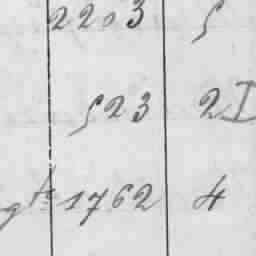 2203 5
523 2I
gt 1762 4